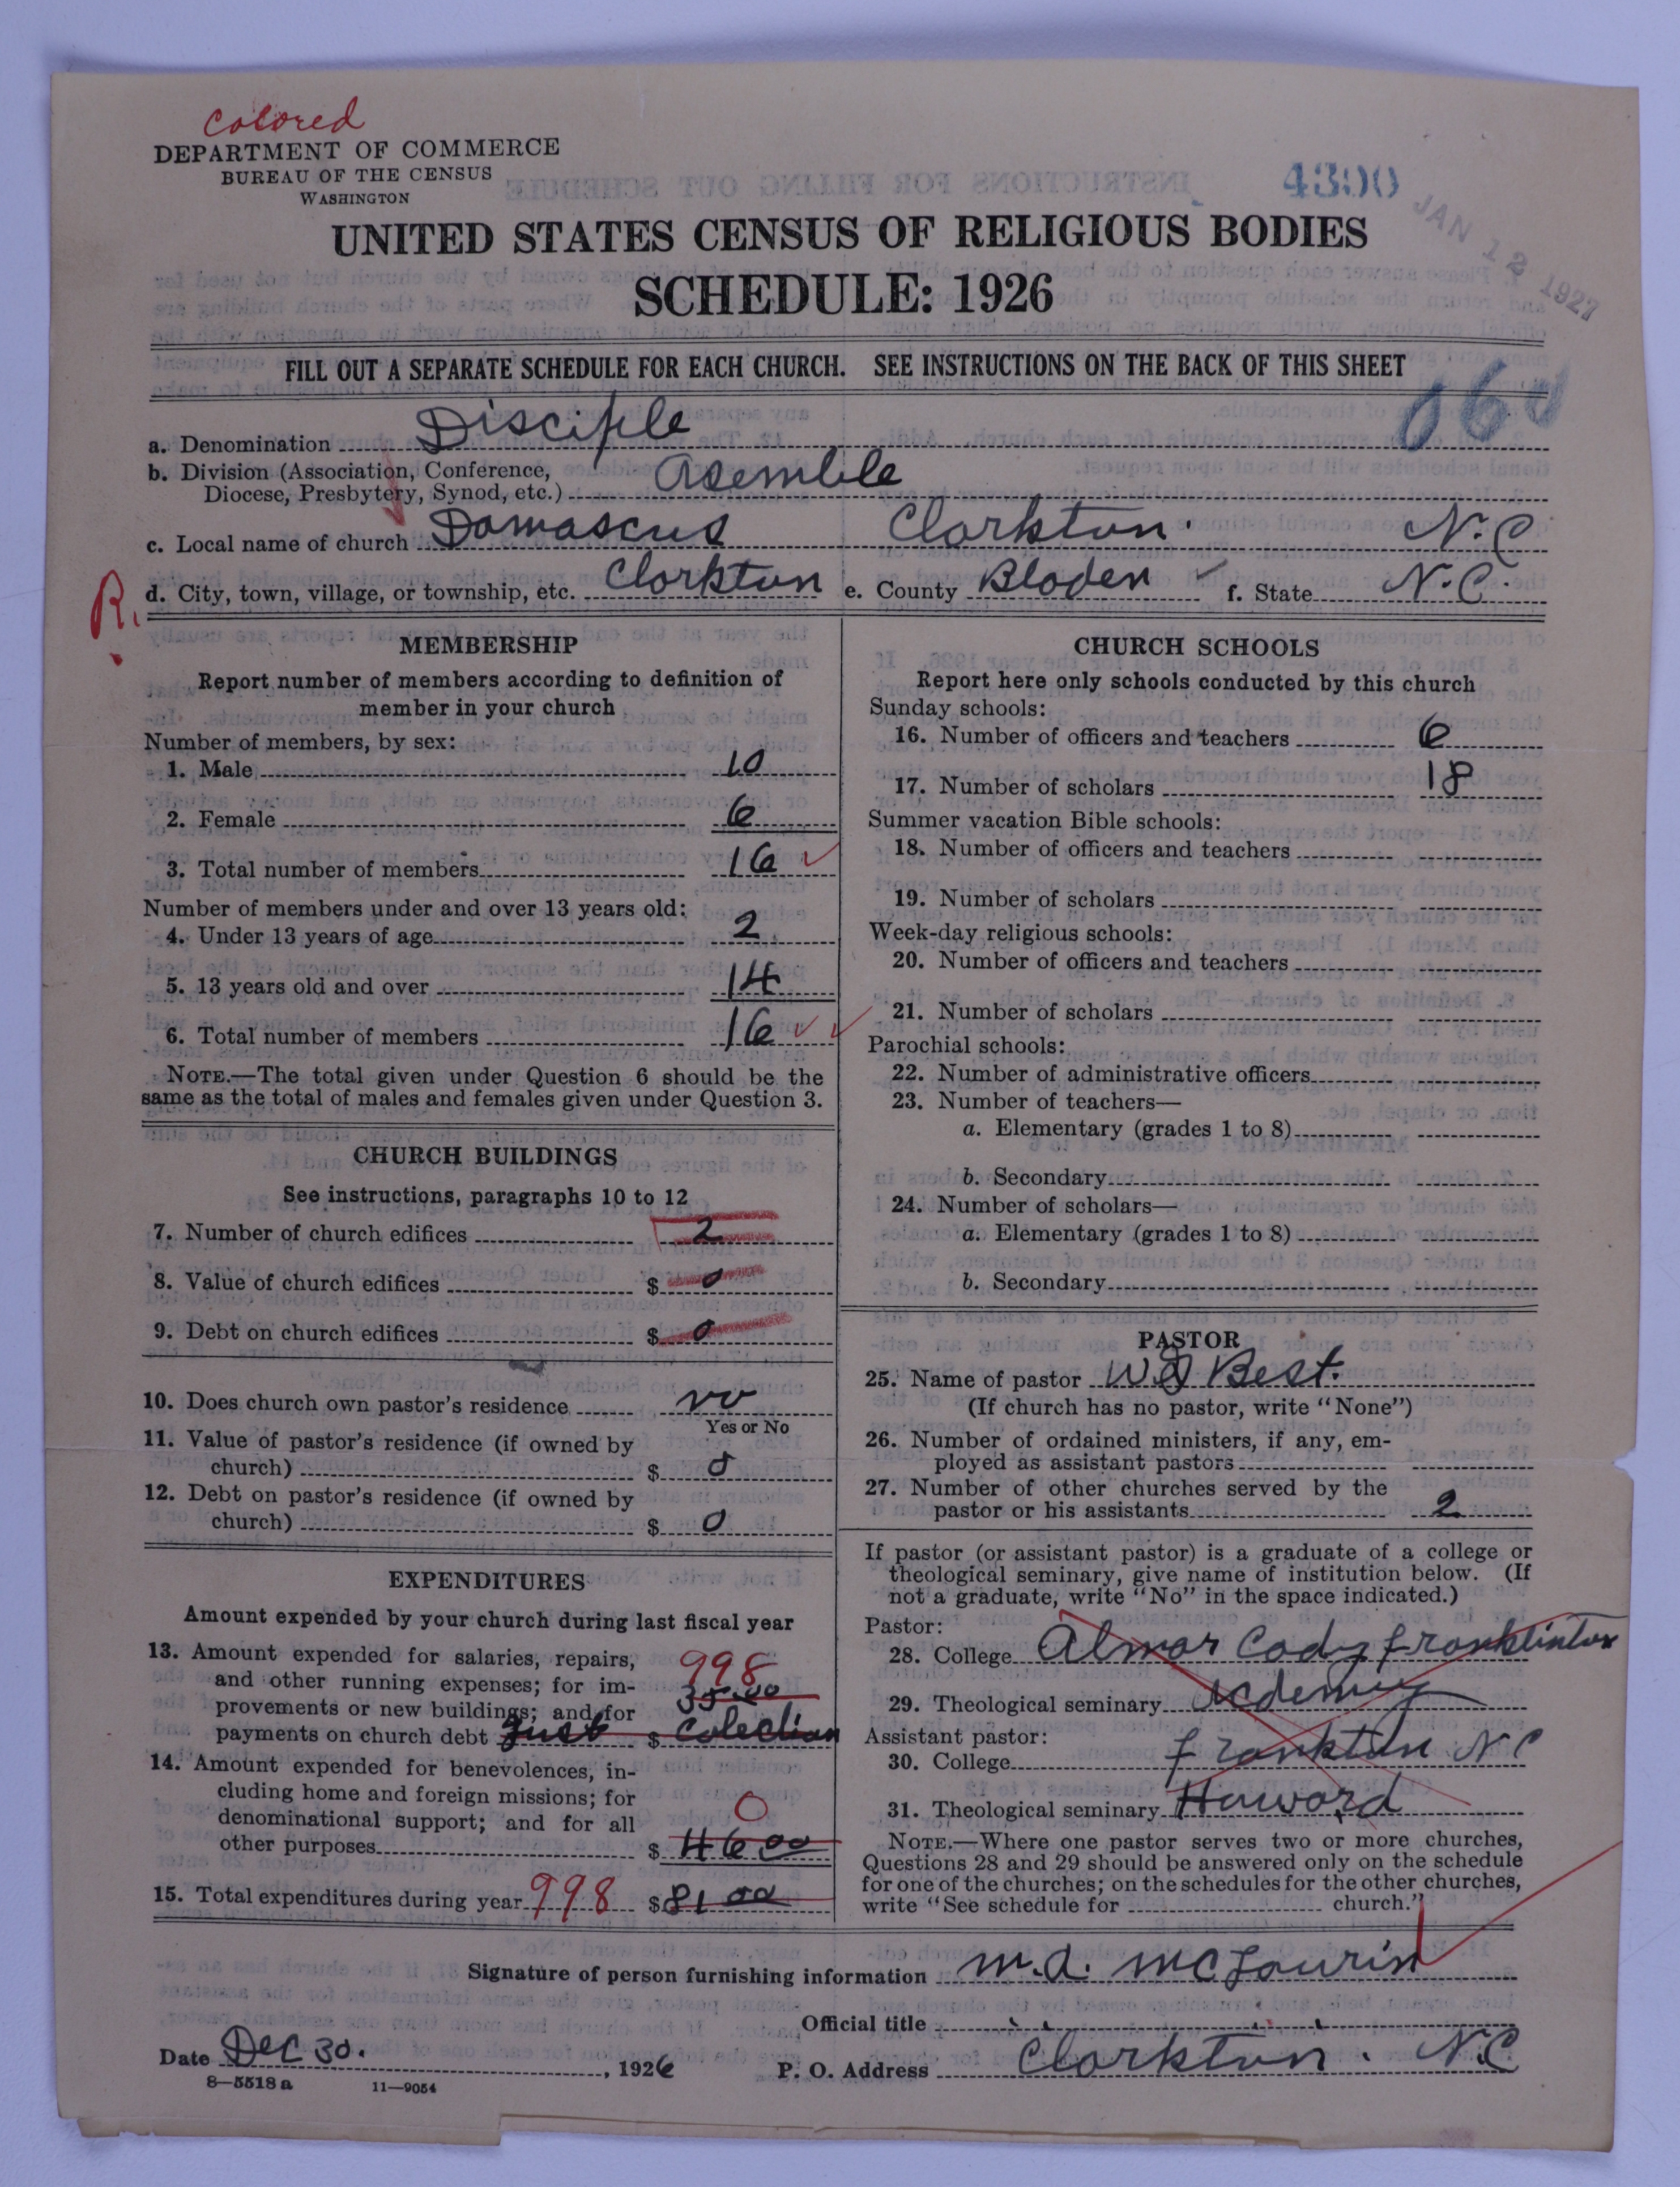 Colored
DEPARTMENT OF COMMERCE
BUREAU OF THE CENSUS
WASHINGTON
4390
JAN 12 1927
UNITED STATES CENSUS OF RELIGIOUS BODIES
SCHEDULE: 1926
FILL OUT A SEPARATE SCHEDULE FOR EACH CHURCH. SEE INSTRUCTIONS ON THE BACK OF THIS SHEET
060
a. Denomination Disciple
b. Division (Association, Conference,
Diocese, Presbytery, Synod, etc.) Asemble
c. Local name of church Damascus Clarkton. N.C
R. d. City, town, village, or township, etc. Clarkton e. County Bladen f. State N.C.
MEMBERSHIP
Report number of members according to definition of
member in your church
Number of members, by sex:
1. Male 10
2. Female 6
3. Total number of members 16
Number of members under and over 13 years old:
4. Under 13 years of age 2
5. 13 years old and over 14
6. Total number of members 16
NOTE.—The total given under Question 6 should be the
same as the total of males and females given under Question 3.
CHURCH BUILDINGS
See instructions, paragraphs 10 to 12
7. Number of church edifices 2
8. Value of church edifices $ 0
9. Debt on church edifices $ 0
10. Does church own pastor's residence no
Yes or No
11. Value of pastor's residence (if owned by
church) $ 0
12. Debt on pastor's residence (if owned by
church) $ 0
EXPENDITURES
Amount expended by your church during last fiscal year
13. Amount expended for salaries, repairs,
and other running expenses; for im- 998
provements or new buildings; and for 35.00
payments on church debt Just $ Colection
14. Amount expended for benevolences, in-
cluding home and foreign missions; for
denominational support; and for all 0
other purposes $ 46 00
15. Total expenditures during year 998 $ 81 00
CHURCH SCHOOLS
Report here only schools conducted by this church
Sunday schools:
16. Number of officers and teachers 6
17. Number of scholars 18
Summer vacation Bible schools:
18. Number of officers and teachers
19. Number of scholars
Week-day religious schools:
20. Number of officers and teachers
21. Number of scholars
Parochial schools:
22. Number of administrative officers
23. Number of teachers—
a. Elementary (grades 1 to 8)
b. Secondary
24. Number of scholars—
a. Elementary (grades 1 to 8)
b. Secondary
PASTOR
25. Name of pastor Best.
(If church has no pastor, write "None")
26. Number of ordained ministers, if any, em-
ployed as assistant pastors
27. Number of other churches served by the
pastor or his assistants 2
If pastor (or assistant pastor) is a graduate of a college or
theological seminary, give name of institution below. (If
not a graduate, write "No" in the space indicated.)
Pastor:
28. College Franklinton
29. Theological seminary Acdemy
Assistant pastor:
30. College Frankton N C
31. Theological seminary Howard
NOTE.—Where one pastor serves two or more churches,
Questions 28 and 29 should be answered only on the schedule
for one of the churches; on the schedules for the other churches,
write "See schedule for church."
Signature of person furnishing information M.A. McLaurin
Official title
Date Dec 30. , 1926 P. O. Address Clarkton. N.C
8—5518 a 11—9054